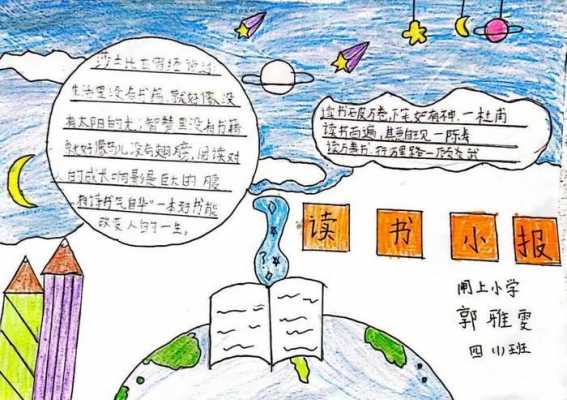 莎士比亚曾经说过
生活里没有书籍,就好像没
有太阳的光;智慧里没有书籍
就好像鸟儿没有翅膀,阅读对
人的成长响影是巨大的腹
有诗书气自华"一本好书能
改变人的一生。
读书破万卷,下笔如有神.一杜甫
读书百遍,其意自见一陈寿
读万卷书,行万里路一
读书小报
闸上小学
郭雅雯
四(1)班